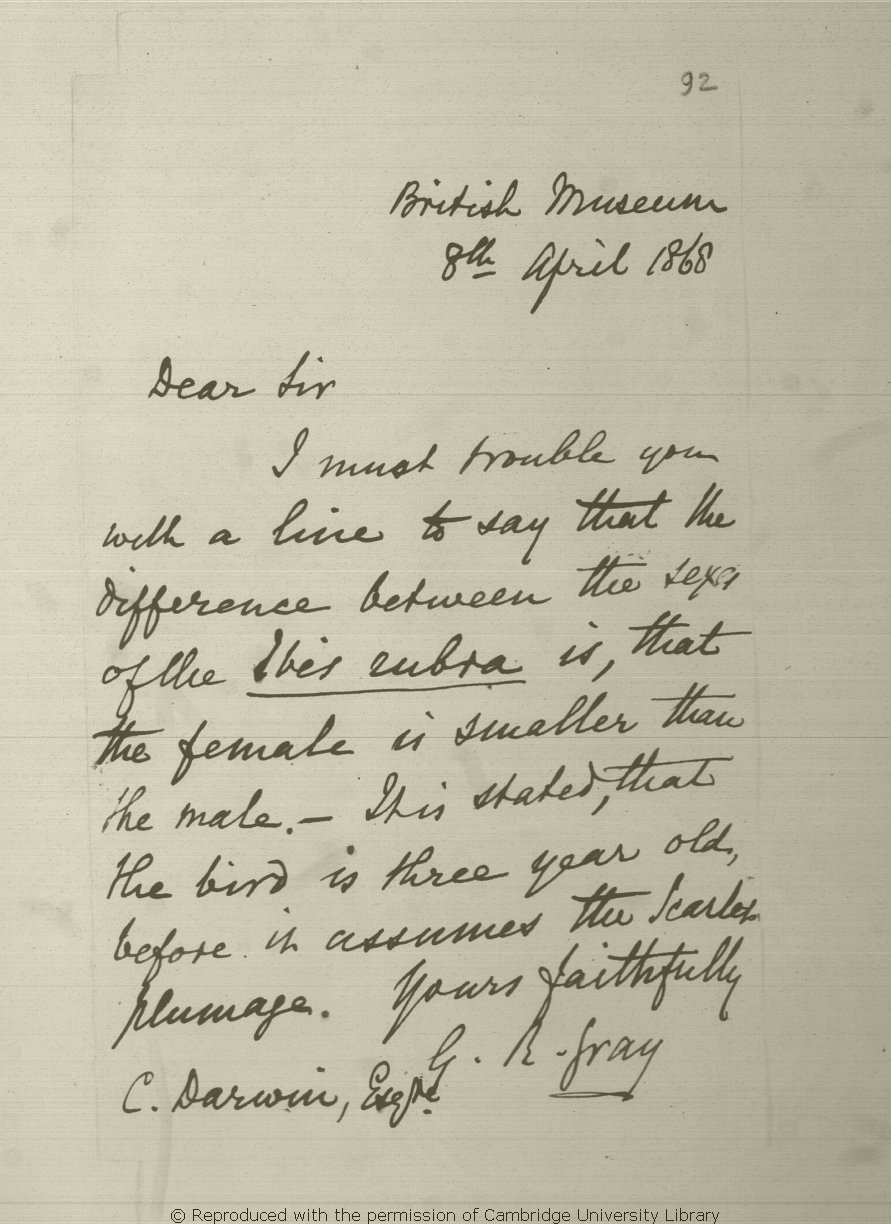 92
British Museum
8th April 1868
Dear Sir
I must trouble you
with a line to say that the
difference between the sexes
of the Ibis rubra is, that
the female is smaller than
the male. — It is stated, that
the bird is three year old,
before it assumes the Scarlet
plumage. Yours faithfully
G. R. Gray
C. Darwin, Esqre.
© Reproduced with the permission of Cambridge University Library